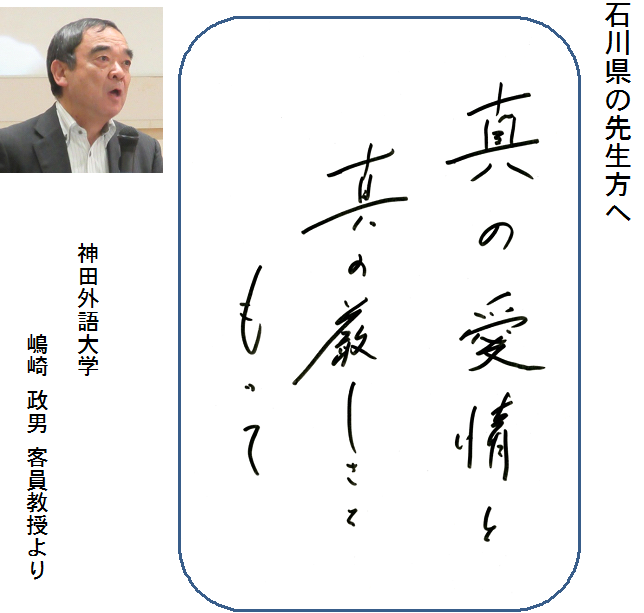 石川県の先生方へ
真の愛情と
真の厳しさを
もって
神田外語大学
嶋崎 政男 客員教授より